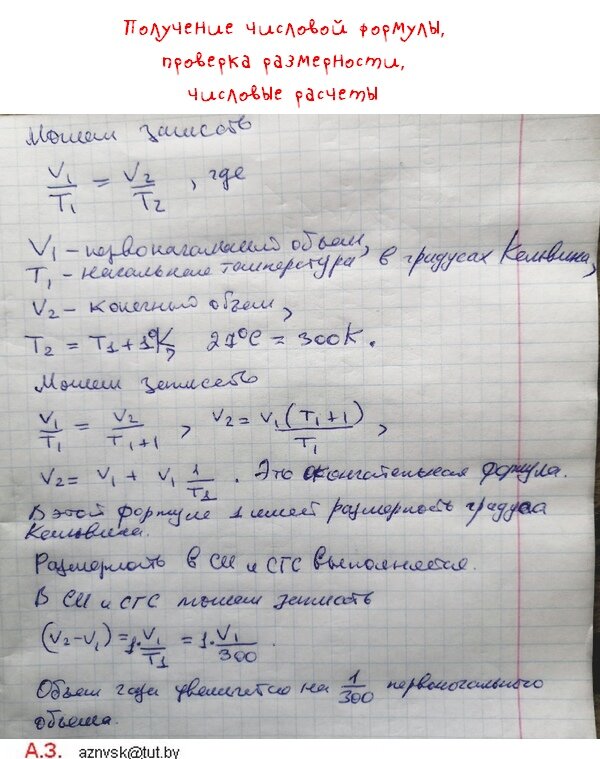 Получение числовой формулы,
проверка размерности,
числовые расчеты
Можем записать
V₁/T₁ = V₂/T₂ , где
V₁ – первоначальный объем,
T₁ – начальная температура, в градусах Кельвина,
V₂ – конечный объем,
T₂ = T₁ + 1°K, 27°C = 300K.
Можем записать
V₁/T₁ = V₂/(T₁+1) , V₂ = V₁(T₁+1)/T₁ ,
V₂ = V₁ + V₁ 1/T₁ . Это окончательная формула.
В этой формуле 1 имеет размерность градуса
Кельвина.
Размерность в СИ и СГС выполняется.
В СИ и СГС можем записать
(V₂–V₁) = 1·V₁/T₁ = 1·V₁/300 .
Объем газа увеличится на 1/300 первоначального
объема.
А.З. aznvsk@tut.by